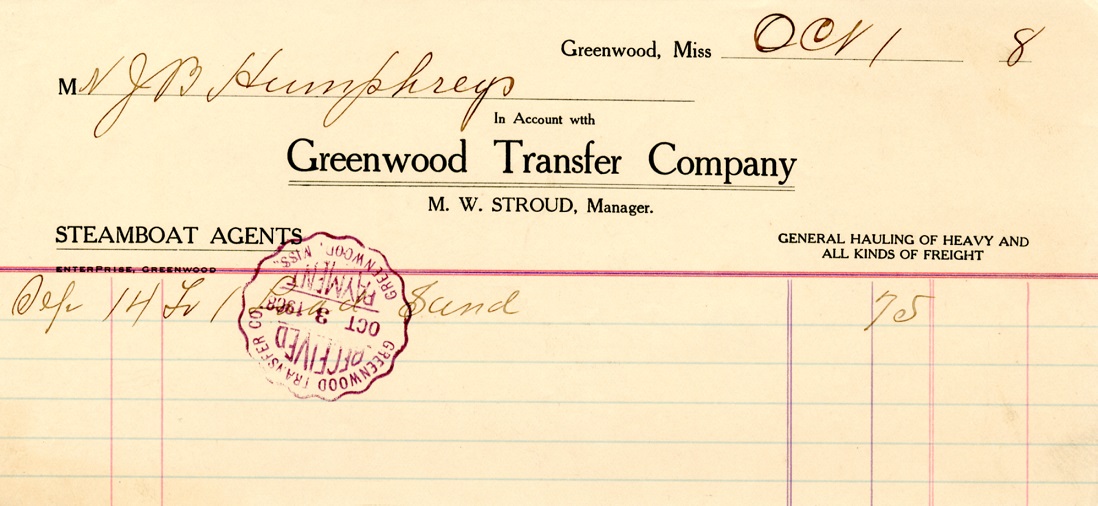 Greenwood, Miss OCN 1 8
M N J B Humphreys
In Account wtth
Greenwood Transfer Company
M. W. STROUD, Manager.
STEAMBOAT AGENTS
GENERAL HAULING OF HEAVY AND
ALL KINDS OF FREIGHT
ENTERPRISE, GREENWOOD
Sep 14 To 1 Load Sand 75
GREENWOOD TRANSFER CO.
RECEIVED
OCT 3 1908
PAYMENT
GREENWOOD, MISS.